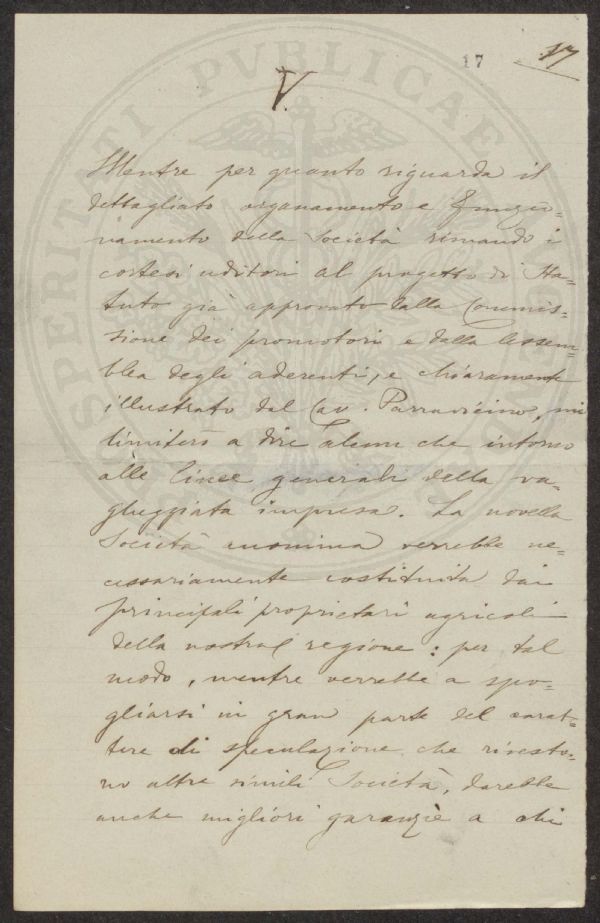 17 17
V.
Mentre per quanto riguarda il
dettagliato organamento e funzio=
namento della Società rimando i
cortesi uditori al progetto di Sta=
tuto già approvato dalla Commis=
sione dei promotori e dalla Assem=
blea degli aderenti, e chiaramente
illustrato dal Cav. Parravicino, mi
limiterò a dire alcun che intorno
alle linee generali della va=
gheggiata impresa. La novella
Società anonima verrebbe ne=
cessariamente costituita dai
principali proprietari agricoli
della nostra regione: per tal
modo, mentre verrebbe a spo=
gliarsi in gran parte del carat=
tere di speculazione che rivesto=
no altre simili Società, darebbe
anche migliori garanzie a chi
PROSPERITATI PVBLICAE